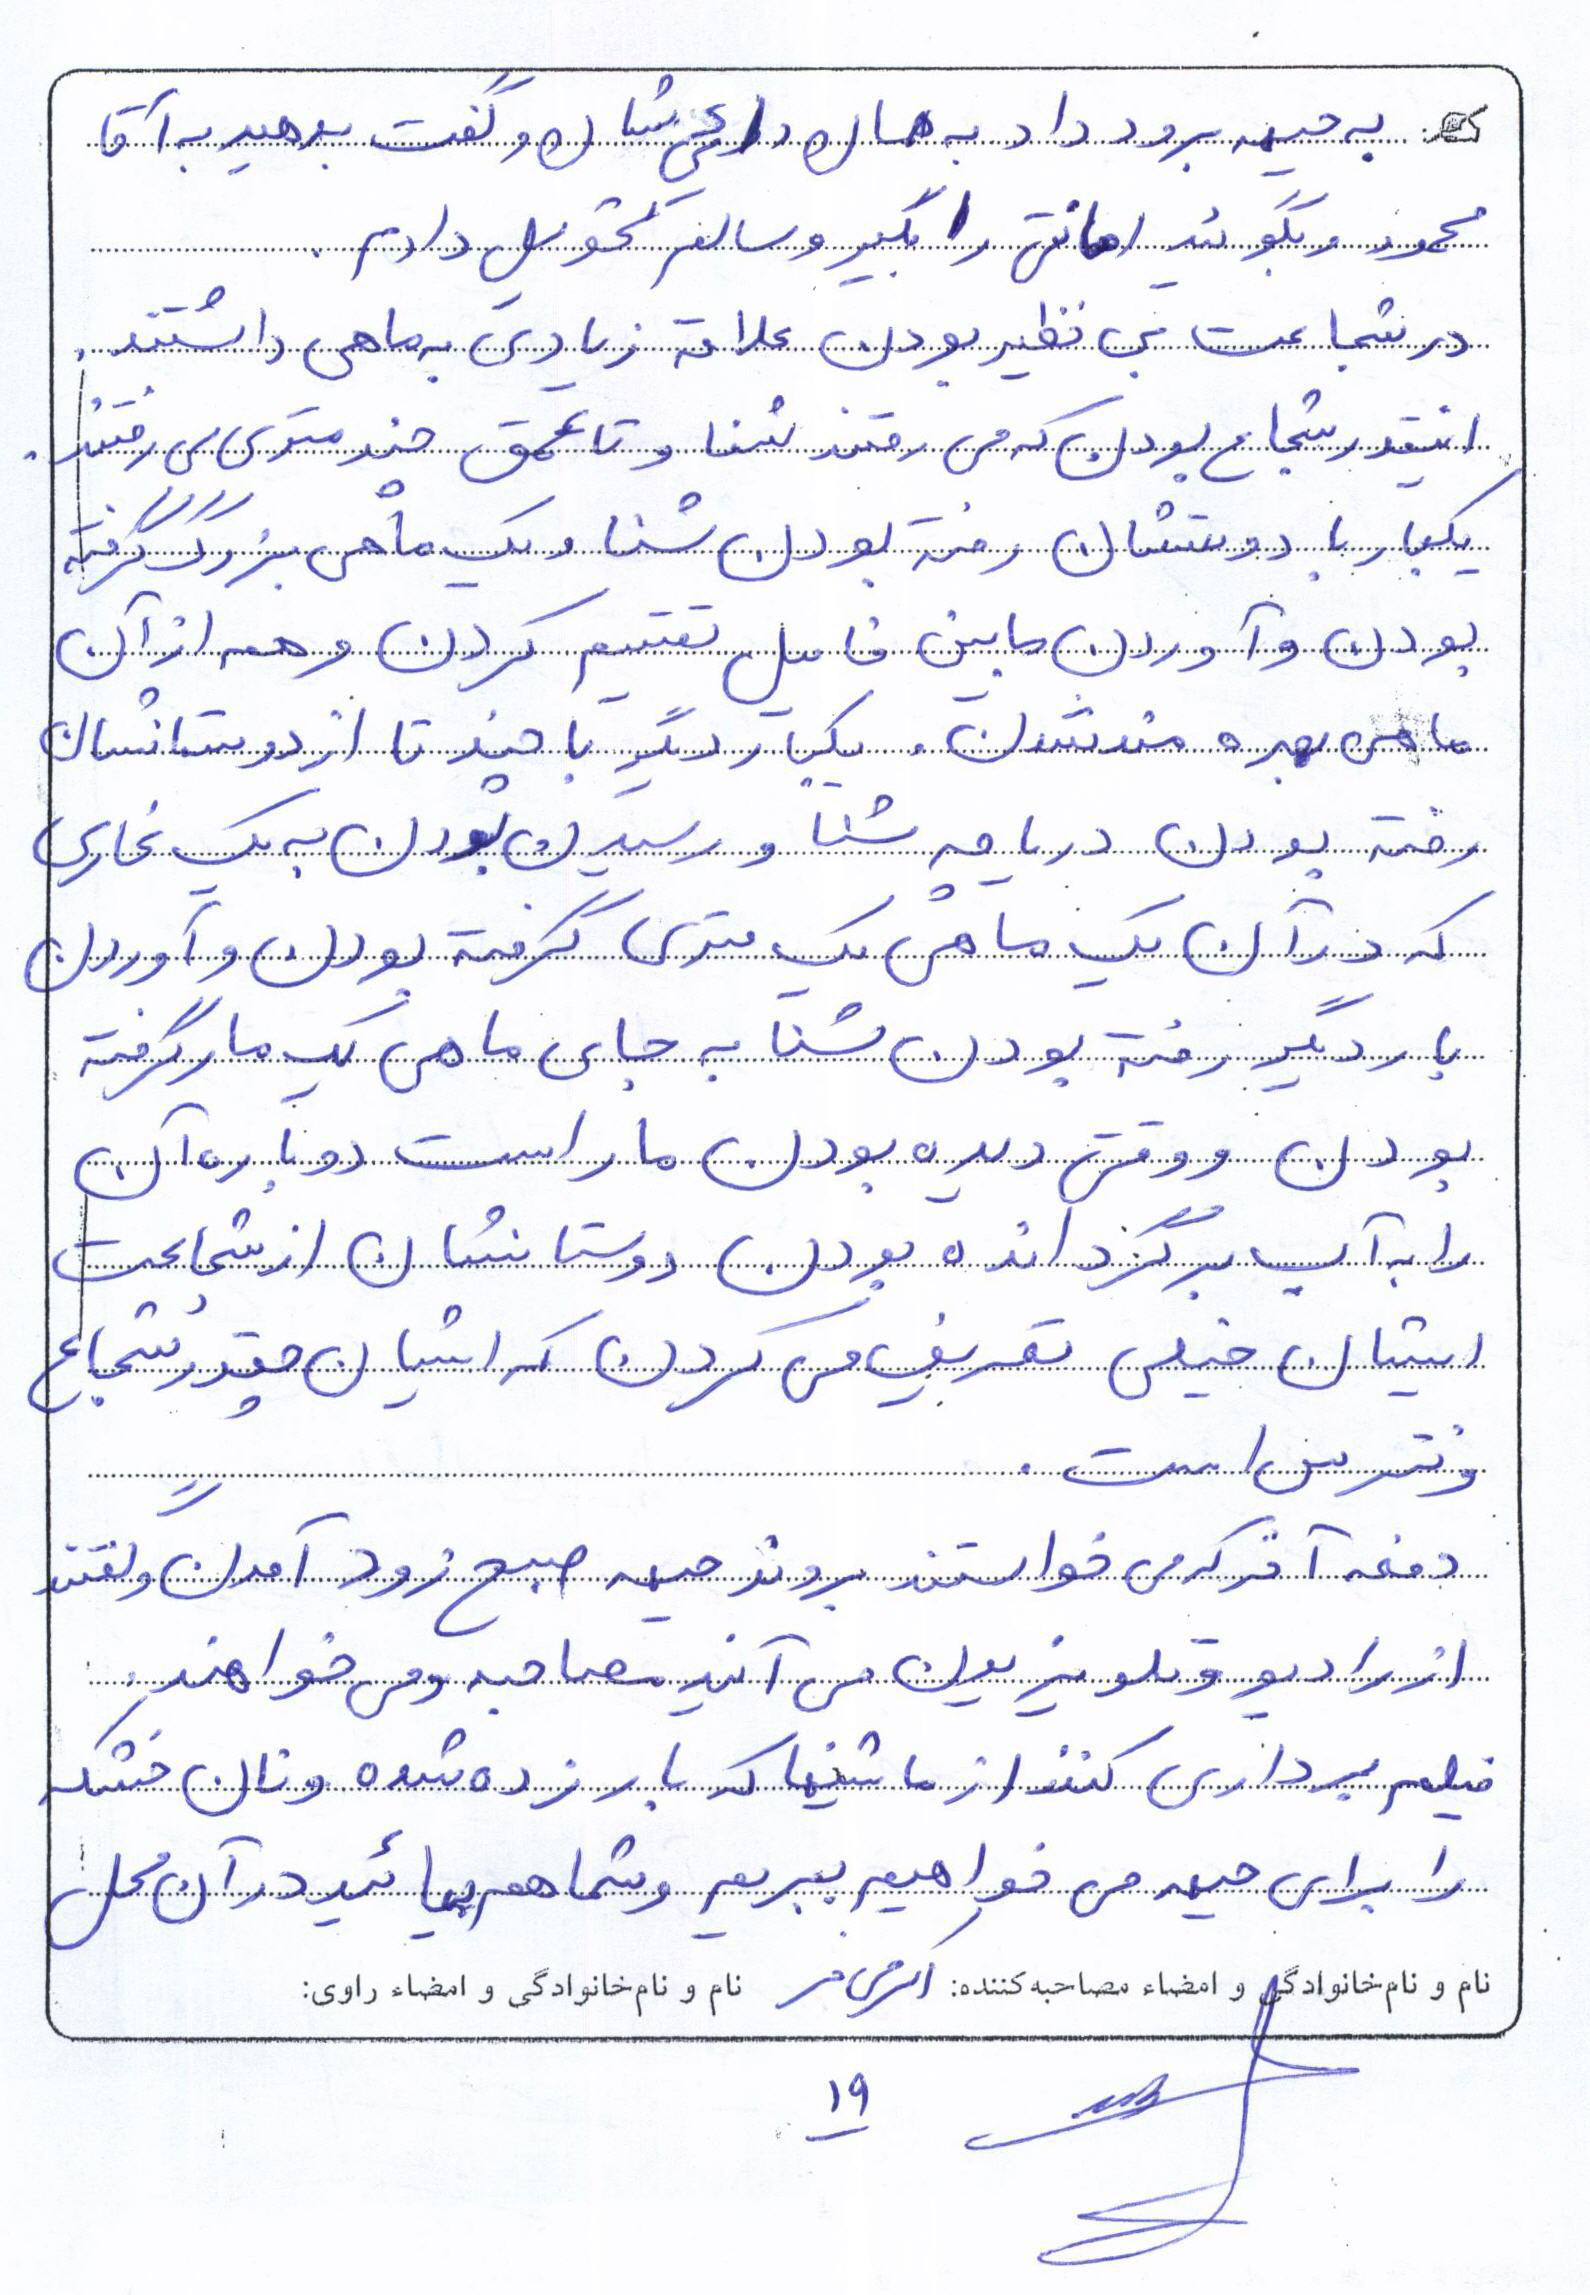 به جبهه برود داد به همان داعی شان و گفت بدهید به آقا
محمود و بگوئید امانتی را بگیر و سالم تحویل دادم .
در شجاعت بی نظیر بودن علاقه زیادی به ماهی داشتند .
اینقدر شجاع بودن که می رفتند شنا و تا عمق چند متری می رفتند .
یکبار با دوستشان رفته بودن شنا و یک ماهی بزرگ گرفته
بودن و آوردن مابین فامیل تقسیم کردن و همه از آن
ماهی بهره مند شدن . یکبار دیگر با چند تا از دوستانشان
رفته بودن دریاچه شنا و رسیدن بودن به یک غاری
که در آن یک ماهی یک متری گرفته بودن و آوردن
بار دیگر رفته بودن شنا به جای ماهی یک مار گرفته
بودن و وقتی دیده بودن مار است دوباره آن
را به آب برگردانده بودن دوستانشان از شجاعت
ایشان خیلی تعریف می کردن که ایشان چقدر شجاع
و نترس است .
دفعه آخر که می خواستند بروند جبهه صبح زود آمدن و گفتند
از رادیو و تلویزیون می آیند مصاحبه و می خواهند .
فیلم برداری کنند از ماشینها که بار زده شده و نان خشک
را برای جبهه می خواهیم ببریم و شما هم بیائید در آن محل
نام و نام‌خانوادگی و امضاء مصاحبه‌کننده: نام و نام‌خانوادگی و امضاء راوی:
۱۹